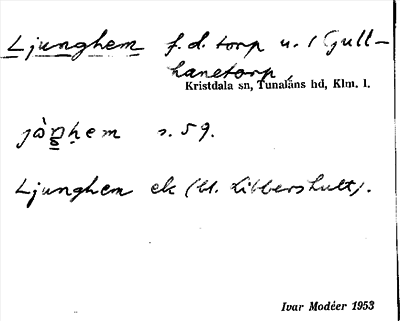 Ljunghem f.d. torp u. / Gull-
hanetorp,
Kristdala sn, Tunaläns hd, Klm. l.
s. 59.
Ljunghem ek (bl. Libbershult).
Ivar Modéer 1953